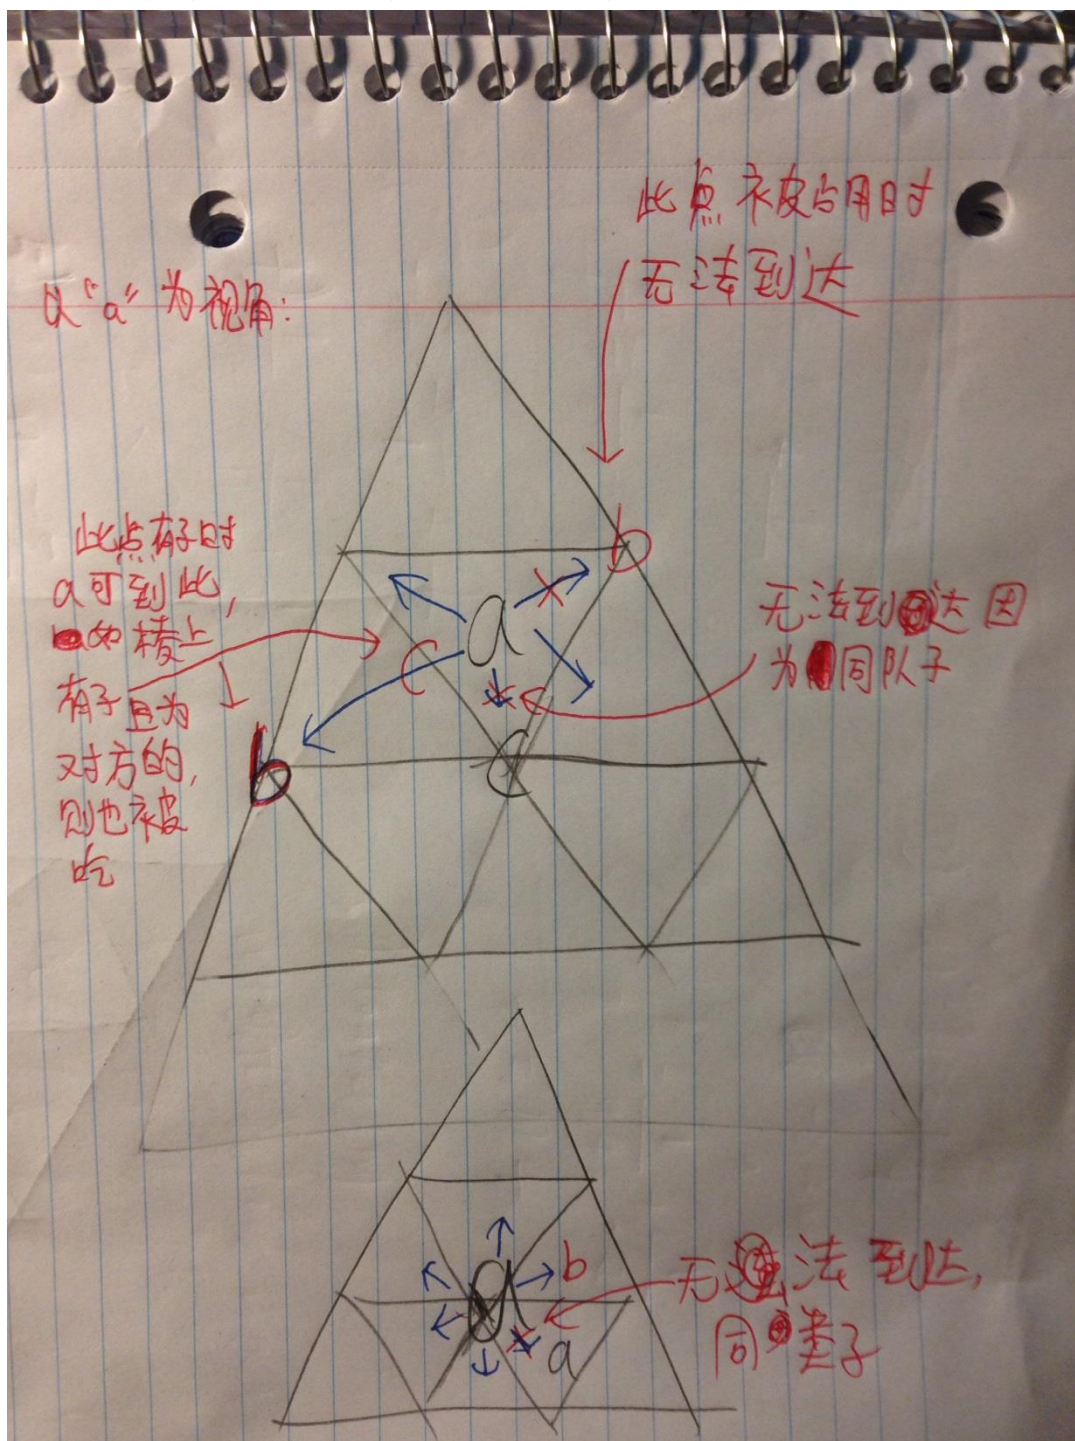 此点被占用时
无法到达
以"a"为视角:
此点有子时
a可到此,
如棱上
有子且为
对方的,
则也被
吃
b
a
无法到达因
为同队子
b
a
a
b
a
无法到达,
同类子